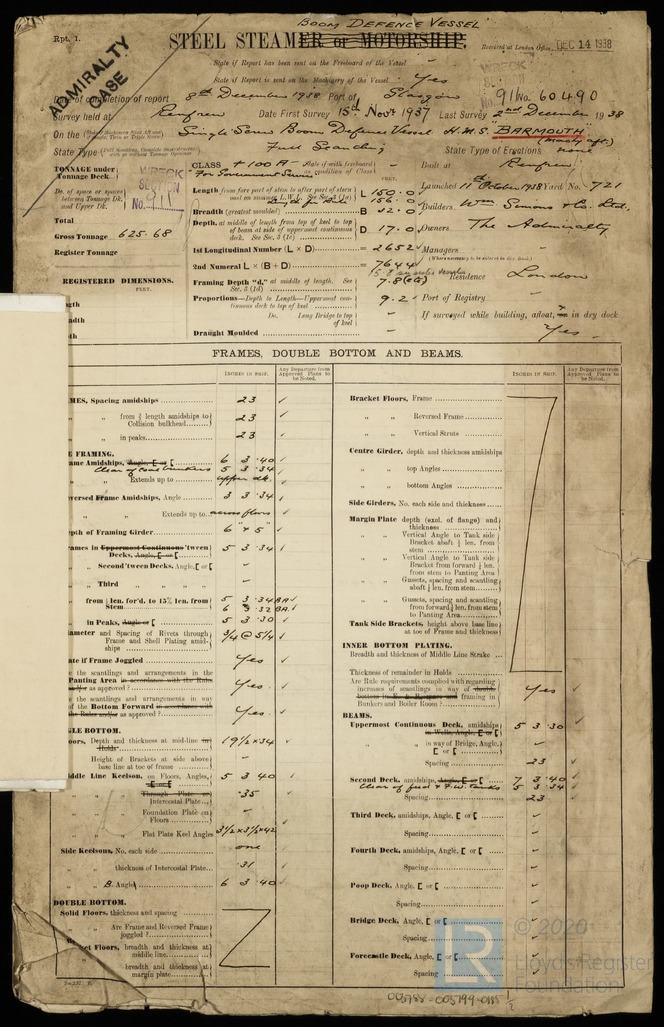 BOOM DEFENCE VESSEL
Rpt. 1.
STEEL STEAMER or MOTORSHIP.
Received at London Office DEC 14 1938
ADMIRALTY CASE
State if Report has been sent on the Freeboard of the Vessel
State if Report is sent on the Machinery of the Vessel Yes
WRECK SECTION No. 911
No. 60490
Date of completion of report 8th December 1938 Port of Glasgow
Survey held at Renfrew Date First Survey 15th Novr 1937 Last Survey 2nd December 1938
On the Single Screw Boom Defence Vessel H.M.S. "BARMOUTH"
State Type Full Scantling State Type of Erections none
TONNAGE under Tonnage Deck
WRECK SECTION No. 911
Do. of space or spaces between Tonnage Dk. and Upper Dk.
Total
Gross Tonnage 625.68
Register Tonnage
REGISTERED DIMENSIONS.
FEET.
CLASS + 100 A State if with freeboard as condition of Class
"For Government Service"
FEET.
Length from fore part of stem to after part of stern post on summer L.W.L. See Sec. 3 (1a) L 150.0
Breadth (greatest moulded) B 32.0
Depth, at middle of length from top of keel to top of beam at side of uppermost continuous deck. See Sec. 3 (1c) D 17.0
1st Longitudinal Number (L × D) = 2652
2nd Numeral L × (B + D) = 7644
Framing Depth "d," at middle of length. See Sec. 3 (1d) 7.8
Proportions—Depth to Length—Uppermost continuous deck to top of keel 9.2
Do. Long Bridge to top of keel
Draught Moulded
Built at Renfrew
Launched 11th October 1938 Yard No. 721
Builders Wm Simons & Co. Ltd.
Owners The Admiralty
Managers
Residence London
Port of Registry
If surveyed while building, afloat, or in dry dock
Yes
FRAMES, DOUBLE BOTTOM AND BEAMS.
INCHES IN SHIP.
Any Departure from Approved Plans to be Noted.
INCHES IN SHIP.
Any Departure from Approved Plans to be Noted.
MES, Spacing amidships 23 ✓
„ „ from ⅗ length amidships to Collision bulkhead 23 ✓
„ „ in peaks 23 ✓
E FRAMING.
rame Amidships, Angle, [ or [ 6 3 .40 ✓
Clear of coal bunkers 5 3 .34 ✓
„ Extends up to upper dk. ✓
versed Frame Amidships, Angle 3 3 .34 ✓
„ „ Extends up to across floors ✓
epth of Framing Girder 6" & 5" ✓
rames in Uppermost Continuous 'tween Decks, Angle, [ or [ 5 3 .34 ✓
„ Second 'tween Decks, Angle, [ or [ -
„ Third „ „ „ -
„ from ⅕ len. for'd. to 15% len. from Stem 5 3 .34 BA ✓
6 3 .32 BA ✓
„ in Peaks, Angle or [ 5 3 .30 ✓
iameter and Spacing of Rivets through Frame and Shell Plating amidships 3/4 @ 5 1/4 ✓
ate if Frame Joggled Yes ✓
e the scantlings and arrangements in the Panting Area in accordance with the Rules and/or as approved? Yes ✓
e the scantlings and arrangements in way of the Bottom Forward in accordance with the Rules and/or as approved? Yes. ✓
GLE BOTTOM.
oors, Depth and thickness at mid-line in Holds 19 1/2 × 34 ✓
Height of Brackets at side above base line at toe of frame -
iddle Line Keelson, on Floors, Angles, [ or [ 5 3 40 ✓
„ „ Through Plate or Intercostal Plate .35 ✓
„ „ Foundation Plate on Floors -
„ „ Flat Plate Keel Angles 3 1/2 × 3 1/2 × 42 ✓
Side Keelsons, No. each side one ✓
„ „ thickness of Intercostal Plate .31 ✓
„ „ B. Angle 6 3 .40 ✓
DOUBLE BOTTOM.
Solid Floors, thickness and spacing
„ Are Frame and Reversed Frame joggled?
Bracket Floors, breadth and thickness at middle line
„ „ breadth and thickness at margin plate
Bracket Floors, Frame
„ „ Reversed Frame
„ „ Vertical Struts
Centre Girder, depth and thickness amidships
„ „ top Angles
„ „ bottom Angles
Side Girders, No. each side and thickness
Margin Plate depth (excl. of flange) and thickness
„ „ Vertical Angle to Tank side Bracket abaft ⅕ len. from stem
„ „ Vertical Angle to Tank side Bracket from forward ⅕ len. from stem to Panting Area
„ „ Gussets, spacing and scantling abaft ⅕ len. from stem
„ „ Gussets, spacing and scantling from forward ⅕ len. from stem to Panting Area
Tank Side Brackets, height above base line at toe of Frame and thickness
INNER BOTTOM PLATING.
Breadth and thickness of Middle Line Strake
Thickness of remainder in Holds
Are Rule requirements complied with regarding increases of scantlings in way of double bottom in E. & B. spaces and framing in Bunkers and Boiler Room? Yes ✓
BEAMS.
Uppermost Continuous Deck, amidships in Wells, Angle, [ or [ 5 3 .30 ✓
„ „ in way of Bridge, Angle, [ or [ -
Spacing 23 ✓
Second Deck, amidships, Angle, [ or [ 7 3 .40 ✓
Clear of fuel & F.W. tanks 5 3 .34 ✓
Spacing 23 ✓
Third Deck, amidships, Angle, [ or [ -
Spacing -
Fourth Deck, amidships, Angle, [ or [ -
Spacing -
Poop Deck, Angle, [ or [ -
Spacing -
Bridge Deck, Angle, [ or [ -
Spacing
Forecastle Deck, Angle, [ or [
Spacing
© 2020
LR
Lloyd's Register Foundation